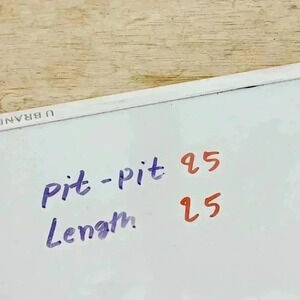 U BRAND
pit-pit 25
Length 25